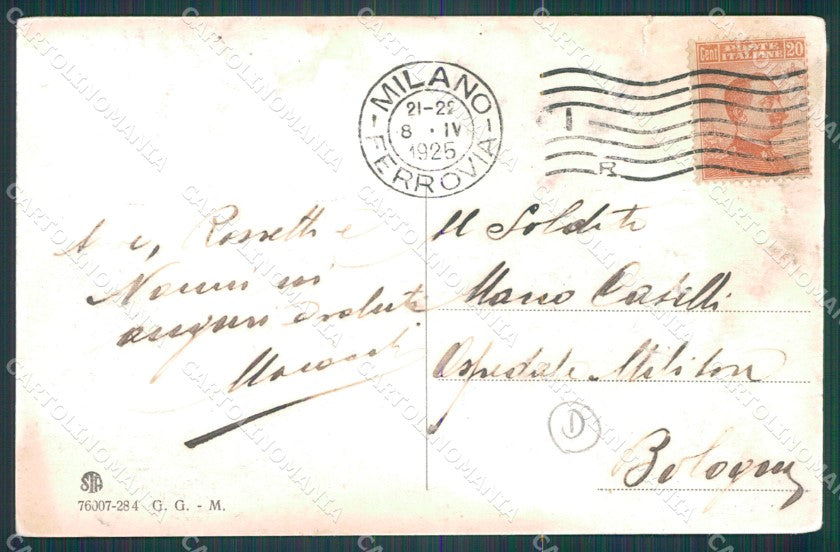 MILANO
21-22
8 · IV
1925
FERROVIA
Cent POSTE ITALIANE 20
R
Rossetti e
auguri e saluti
Al Soldato
Mario Caselli
Ospedale Militare
Bologna
D
STA
76007-284 G. G. - M.
CARTOLINOMANIA